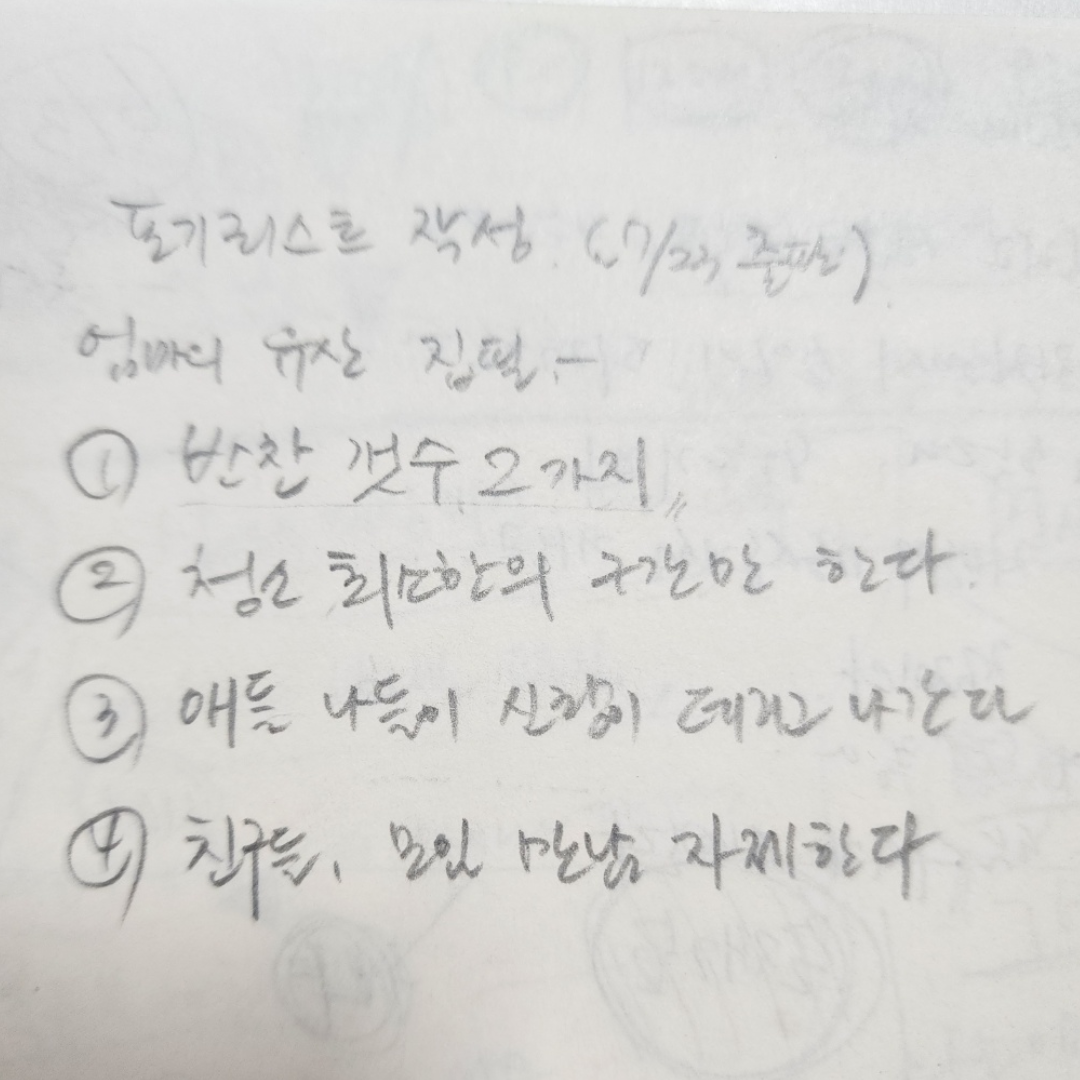 포기리스트 작성 (7/23, 출판)
엄마의 유산 집필, -
① 반찬 갯수 2가지
② 청소 최소한의 구간만 한다.
③ 애들 나들이 신랑이 데리고 나간다
④ 친구들, 모임 만남 자제한다.